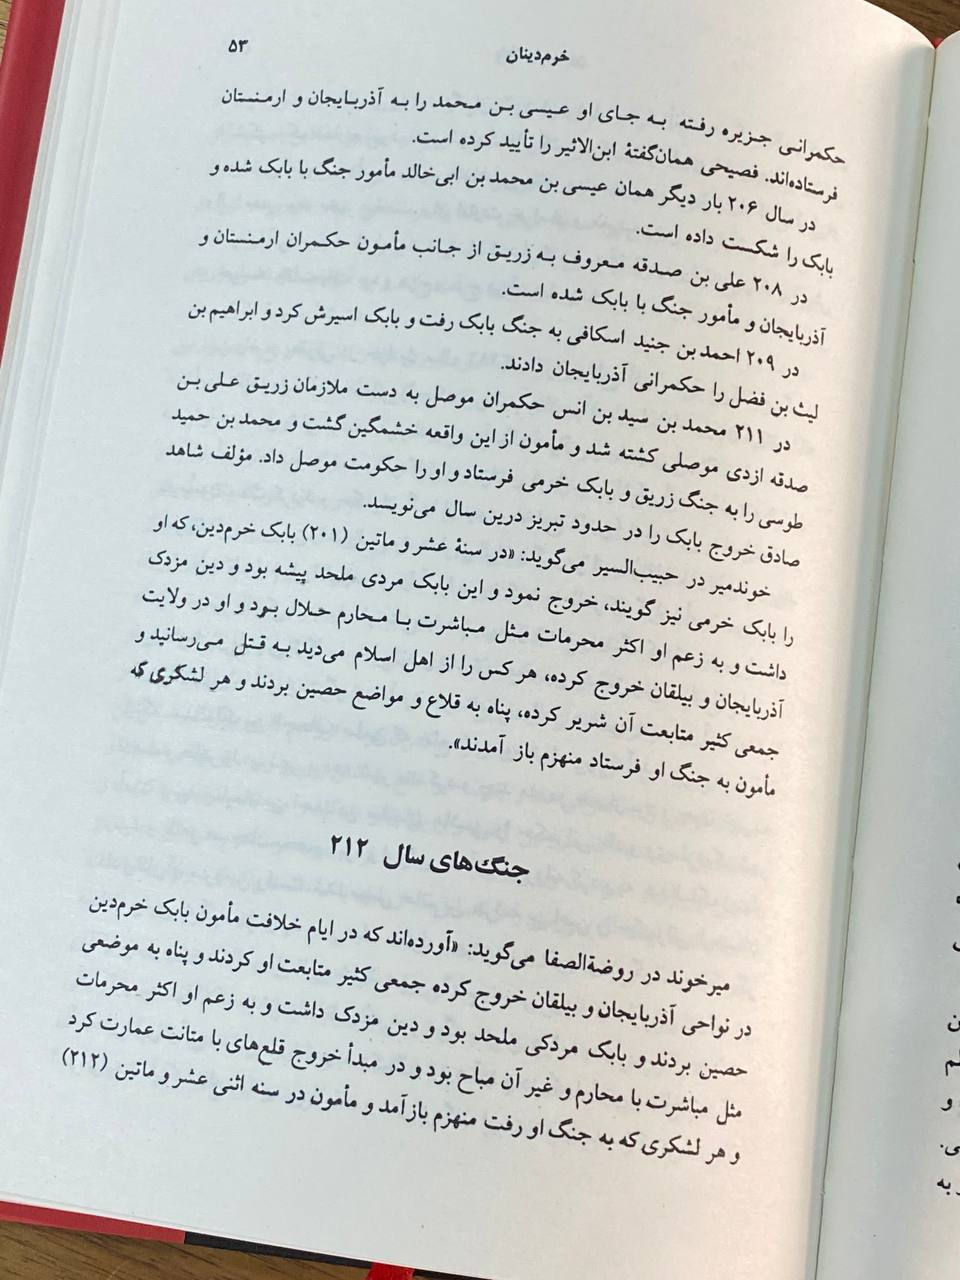 خرم‌دینان
۵۳
حکمرانی جزیره رفته به جای او عیسی بن محمد را به آذربایجان و ارمنستان
فرستاده‌اند. فصیحی همان‌گفتهٔ ابن‌الاثیر را تأیید کرده است.
در سال ۲۰۶ بار دیگر همان عیسی بن محمد بن ابی‌خالد مأمور جنگ با بابک شده و
بابک را شکست داده است.
در ۲۰۸ علی بن صدقه معروف به زریق از جانب مأمون حکمران ارمنستان و
آذربایجان و مأمور جنگ با بابک شده است.
در ۲۰۹ احمد بن جنید اسکافی به جنگ بابک رفت و بابک اسیرش کرد و ابراهیم بن
لیث بن فضل را حکمرانی آذربایجان دادند.
در ۲۱۱ محمد بن سید بن انس حکمران موصل به دست ملازمان زریق علی بن
صدقه ازدی موصلی کشته شد و مأمون از این واقعه خشمگین گشت و محمد بن حمید
طوسی را به جنگ زریق و بابک خرمی فرستاد و او را حکومت موصل داد. مؤلف شاهد
صادق خروج بابک را در حدود تبریز درین سال می‌نویسد.
خوندمیر در حبیب‌السیر می‌گوید: «در سنهٔ عشر و ماتین (۲۰۱) بابک خرم‌دین، که او
را بابک خرمی نیز گویند، خروج نمود و این بابک مردی ملحد پیشه بود و دین مزدک
داشت و به زعم او اکثر محرمات مثل مباشرت با محارم حلال بود و او در ولایت
آذربایجان و بیلقان خروج کرده، هر کس را از اهل اسلام می‌دید به قتل می‌رسانید و
جمعی کثیر متابعت آن شریر کرده، پناه به قلاع و مواضع حصین بردند و هر لشگری که
مأمون به جنگ او فرستاد منهزم باز آمدند».
جنگ‌های سال ۲۱۲
میرخوند در روضةالصفا می‌گوید: «آورده‌اند که در ایام خلافت مأمون بابک خرم‌دین
در نواحی آذربایجان و بیلقان خروج کرده جمعی کثیر متابعت او کردند و پناه به موضعی
حصین بردند و بابک مردکی ملحد بود و دین مزدک داشت و به زعم او اکثر محرمات
مثل مباشرت با محارم و غیر آن مباح بود و در مبدأ خروج قلع‌های با متانت عمارت کرد
و هر لشکری که به جنگ او رفت منهزم بازآمد و مأمون در سنه اثنی عشر و ماتین (۲۱۲)